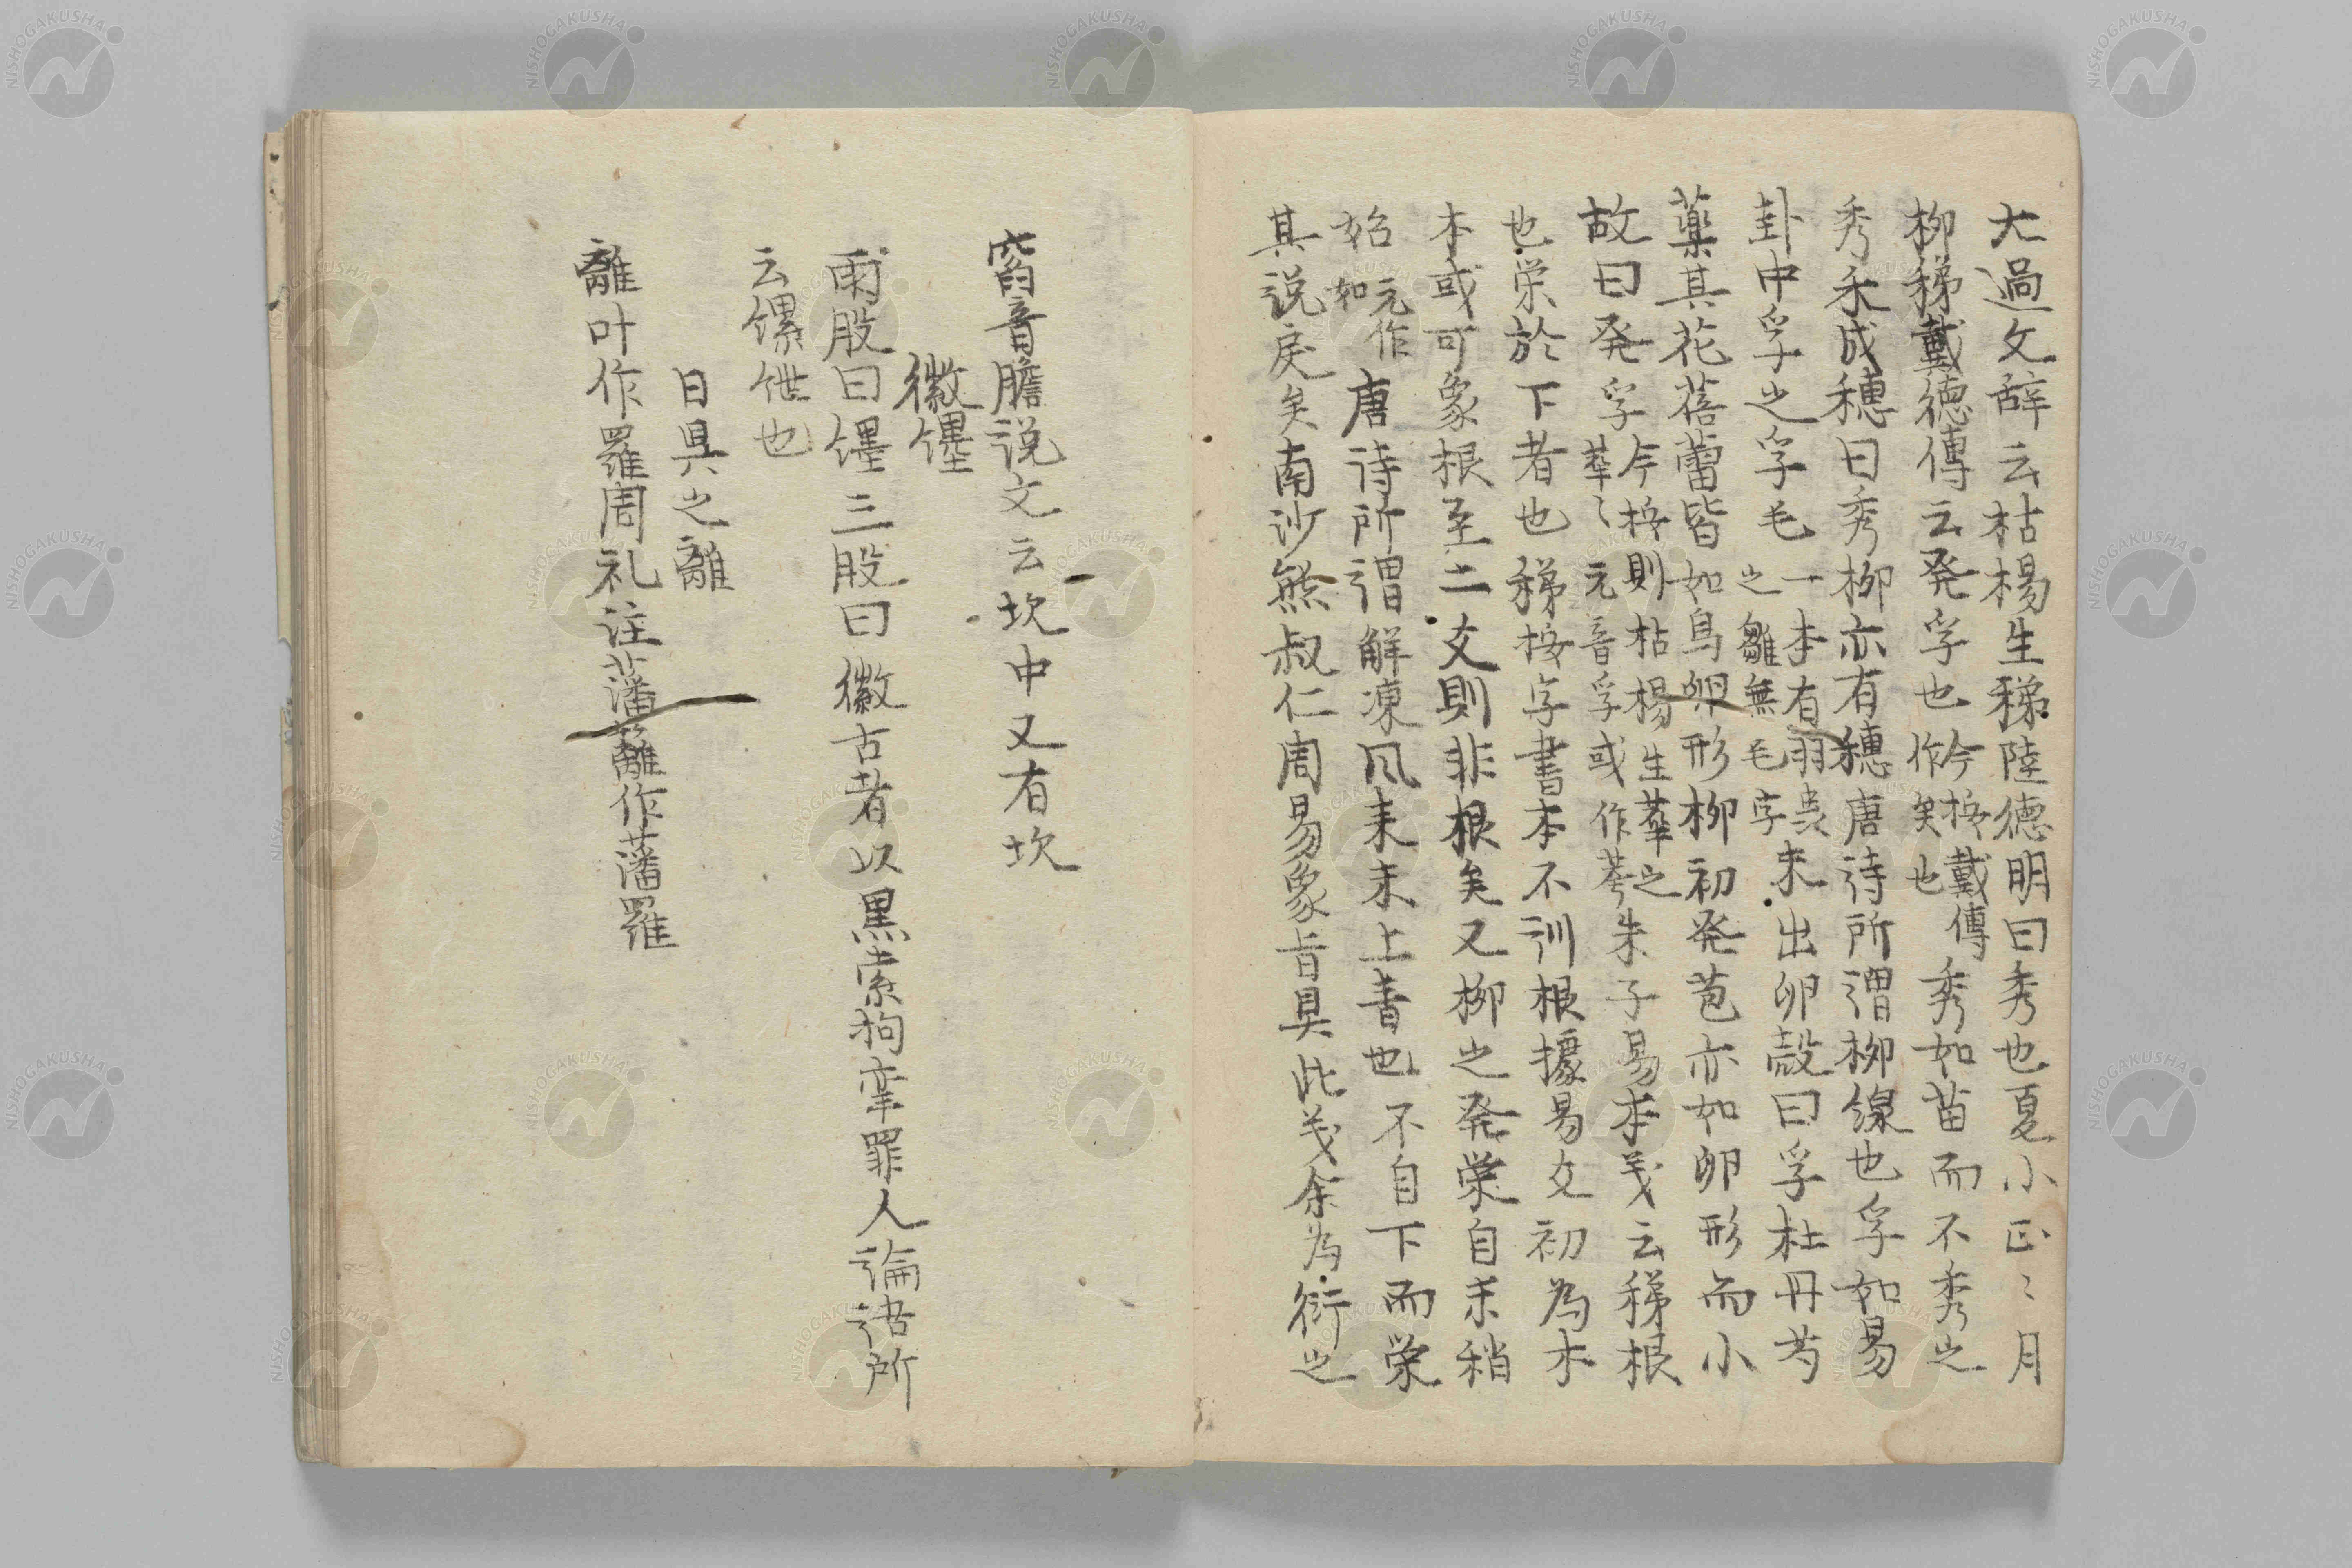 大過爻辞云枯楊生稊陸德明曰秀也夏小正〻月
柳稊戴德傳云発孚也今按戴傳作矣也秀如苗而不秀之
秀禾成穗曰秀柳亦有穗唐詩所謂柳線也孚如易
卦中孚之孚毛一本有羽虫之雛無毛字未出卵殼曰孚杜丹芍
薬其花蓓蕾皆如鳥卵形柳初発苞亦如卵形而小
故曰発孚今按則枯楊生荂之荂〻元音孚或作荂朱子易本义云稊根
也栄於下者也稊按字書本不訓根據易爻初為本
本或可象根至二爻則非根矣又柳之発栄自末稍
始元作如唐詩所謂解凍風来末上青也不自下而栄
其説戾矣南沙熊叔仁周易象旨具此义余為衍之
窞音膽説文云坎中又有坎
徽纆
兩股曰纆三股曰徽古者以黒索拘挛罪人論語所
云縲絏也
日昃之離
離叶作羅周礼注藩蘺作藩羅
NISHOGAKUSHA